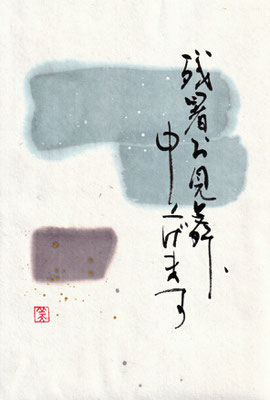 残暑お見舞
申し上げます
笑